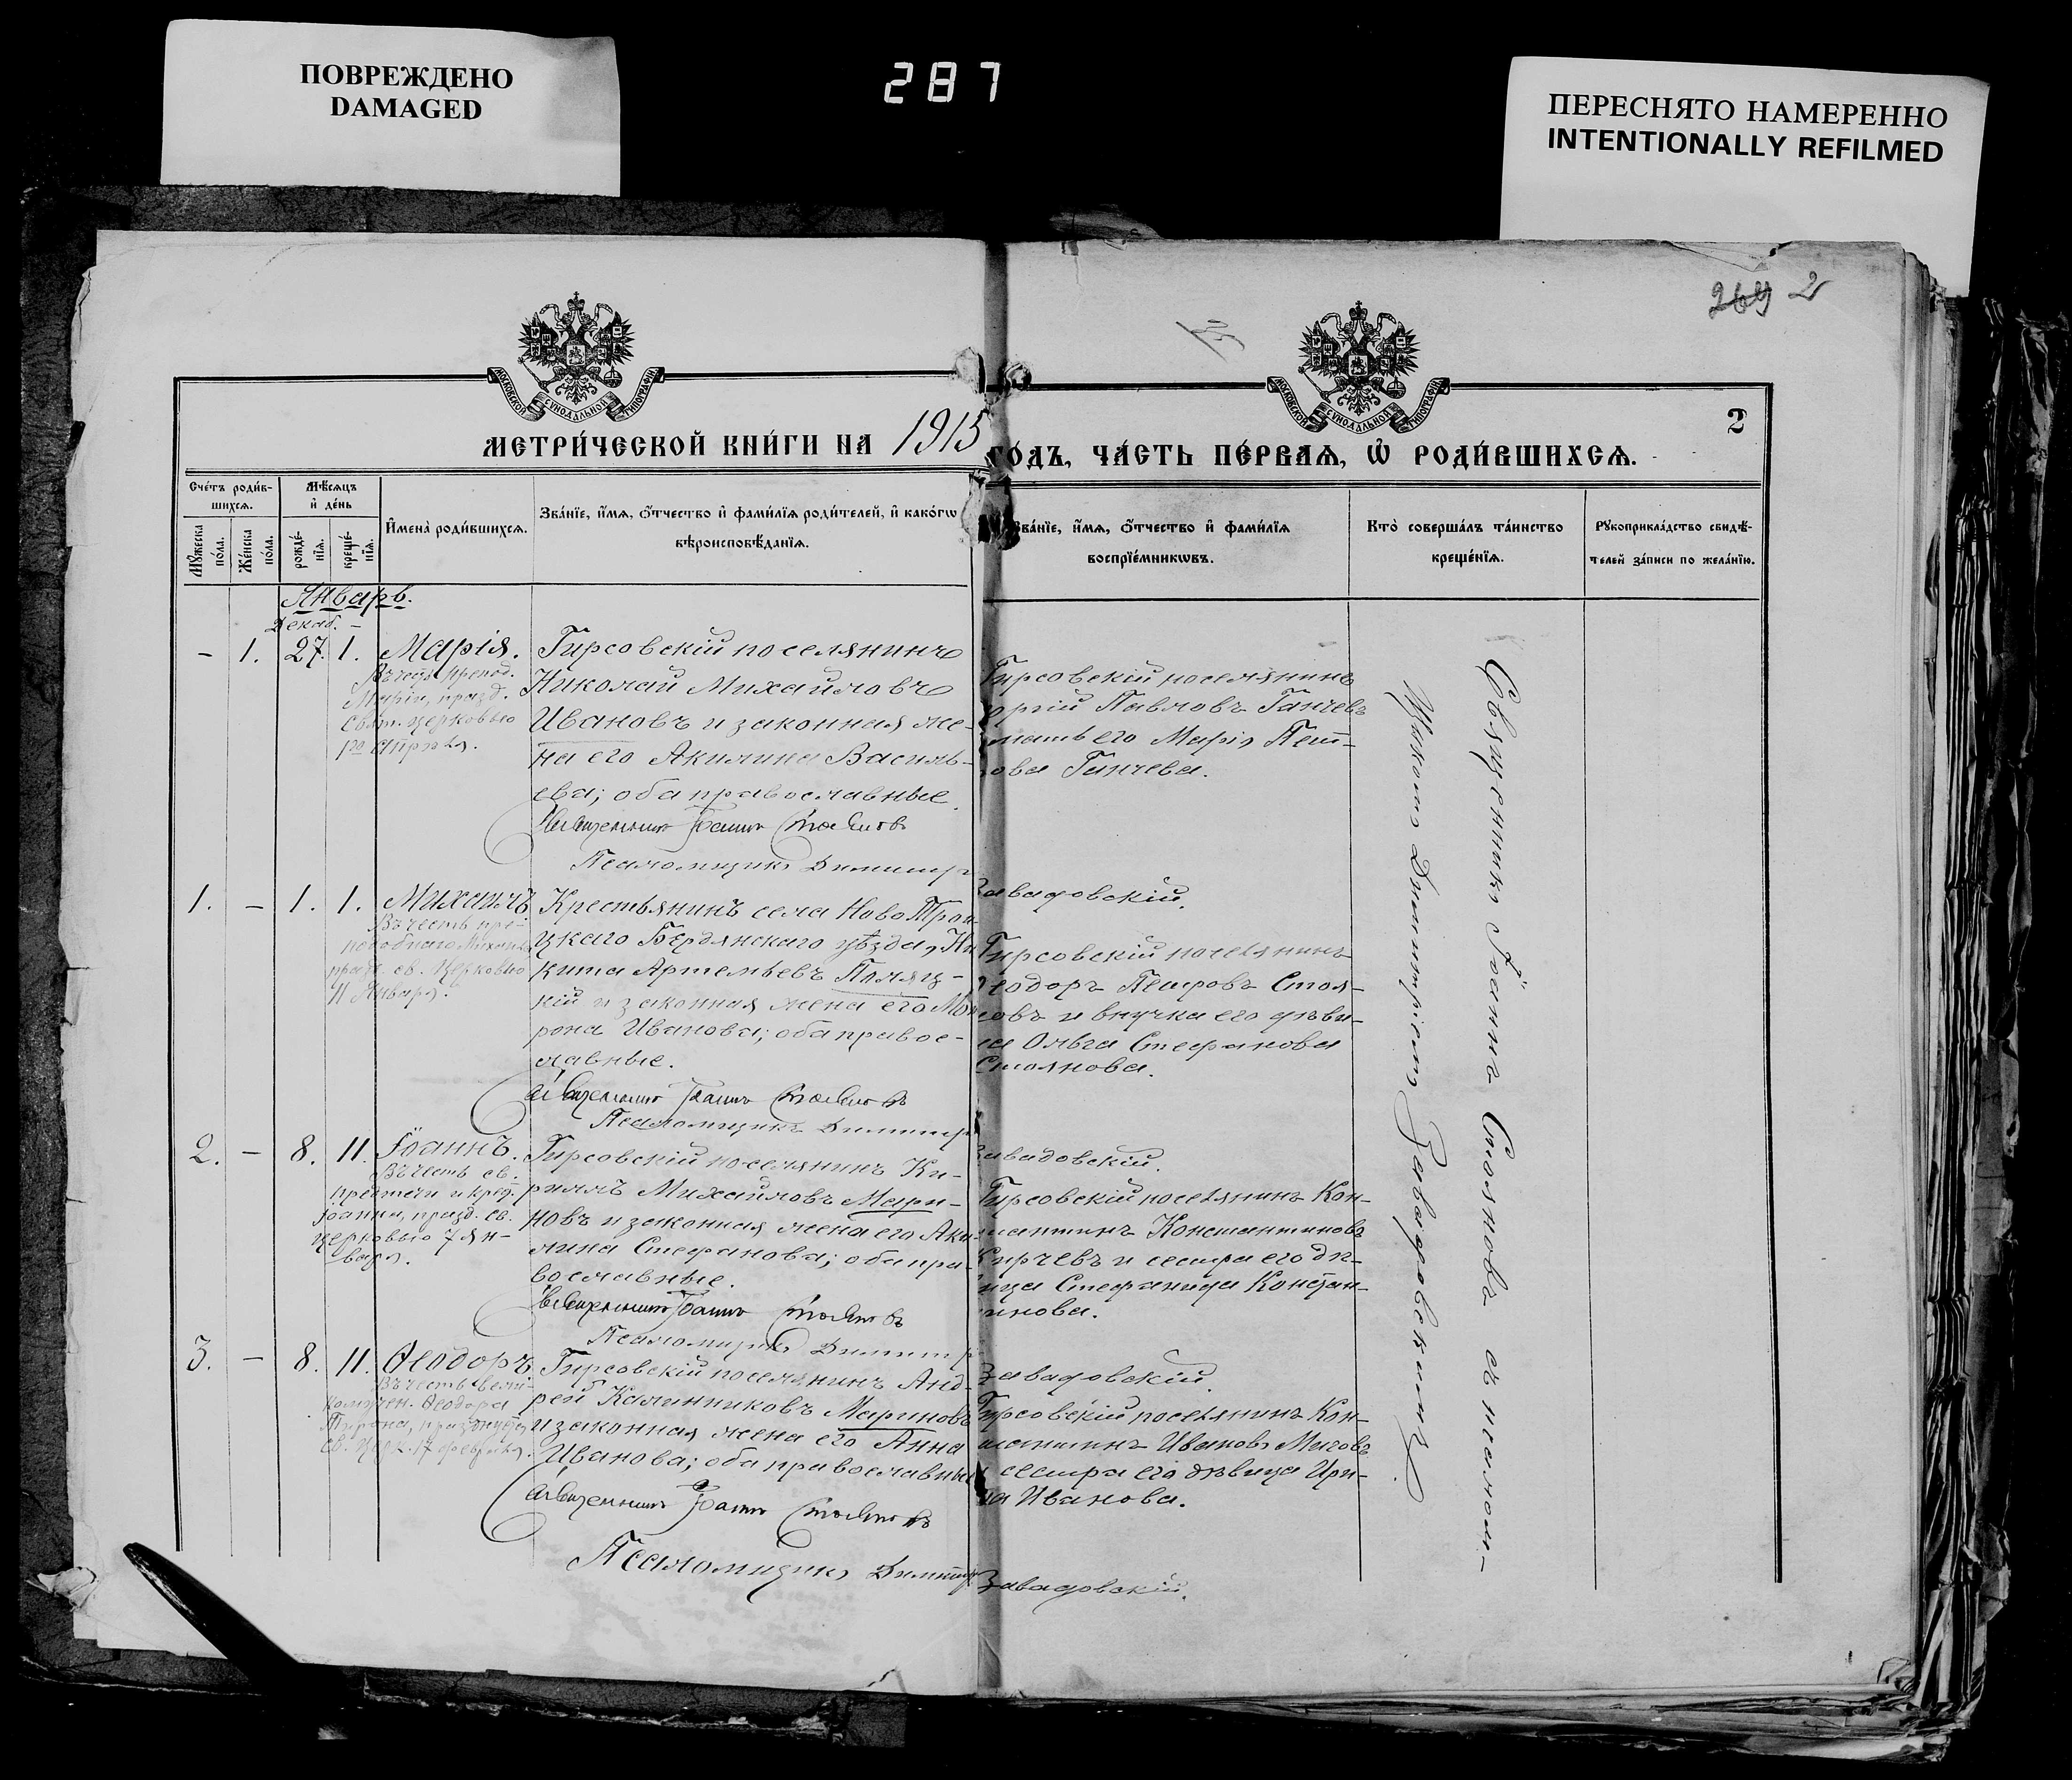 ПОВРЕЖДЕНО
DAMAGED
287
ПЕРЕСНЯТО НАМЕРЕННО
INTENTIONALLY REFILMED
269 2
МОСКОВСКОЙ СѴНОДАЛЬНОЙ ТИПОГРАФІИ
МОСКОВСКОЙ СѴНОДАЛЬНОЙ ТИПОГРАФІИ
2
МЕТРИ́ЧЕСКОЙ КНИ́ГИ НА 1915 ГО́ДЪ, ЧА́СТЬ ПЕ́РВАѦ, Ѽ РОДИ́ВШИХСѦ.
Сче́тъ роди́в-
шихсѧ.
Мꙋжеска по́ла.
Же́нска по́ла.
Мѣ́сѧцъ
и҆ де́нь
рожде́-
нїѧ.
креще́-
нїѧ.
И҆мена̀ роди́вшихсѧ.
Зва́нїе, и҆́мѧ, ѻ҆́тчество и҆ фами́лїѧ роди́телей, и҆ како́гѡ
вѣроисповѣ́данїѧ.
Зва́нїе, и҆́мѧ, ѻ҆́тчество и҆ фами́лїѧ
воспрїе́мникѡвъ.
Кто̀ соверша́лъ та́инство
креще́нїѧ.
Рꙋкоприкла́дство свидѣ́-
телей за́писи по жела́нїю.
Январь.
Декаб. –
– 1. 27. 1. Марія.
Въ честь препод.
Маріи, празд.
свят. церковью
1го Апрѣля.
Гирсовскій поселянинъ
Николай Михайловъ
Ивановъ и законная же-
на его Акилина Василь-
ева; оба православные.
Священникъ Іоаннъ Стояновъ
Псаломщикъ Димитр
Завадовскій.
Гирсовскій поселянинъ
оргій Павловъ Ганчевъ
мать его Марія Пет-
рова Ганчева.
1. – 1. 1. Михаилъ
Въ честь пре-
подобнаго Михаила
празд. св. Церковью
11 Января.
Крестьянинъ села Ново Трои-
цкаго Бердянскаго уѣзда, Ни
кита Артемьевъ Поляц-
кій и законная жена его Мат
рона Иванова; оба правос-
лавные.
Священникъ Іоаннъ Стояновъ
Псаломщикъ Димитр
Завадовскій.
Гирсовскій поселянинъ
Ѳеодоръ Петровъ Стоя-
новъ и внучка его дѣви-
ца Ольга Стефанова
Стоянова.
2. – 8. 11. Іоаннъ.
Въ честь св.
предтечи и крест.
Іоанна, празд. св.
церковью 7 Ян-
варя.
Гирсовскій поселянинъ Ки-
риллъ Михайловъ Мари-
новъ и законная жена его Аки
лина Стефанова; оба пра-
вославные.
Священникъ Іоаннъ Стояновъ
Псаломщикъ Димитр
Завадовскій.
Гирсовскій поселянинъ Кон-
стантинъ Константиновъ
Кирчевъ и сестра его дѣ-
вица Стефанида Констан-
тинова.
3. – 8. 11. Ѳеодоръ
Въ честь вели-
комучен. Ѳеодора
Тирона, празднуем.
св. церк. 17 февраля.
Гирсовскій поселянинъ Анд-
рей Калинниковъ Мариновъ
и законная жена его Анна
Иванова; оба православные
Священникъ Іоаннъ Стояновъ
Псаломщикъ Димитр
Завадовскій.
Гирсовскій поселянинъ Кон-
стантинъ Ивановъ
и сестра его дѣвица Ири-
на Иванова.
Священникъ Іоаннъ Стояновъ съ псалом-
щикомъ Димитріемъ Завадовскимъ.